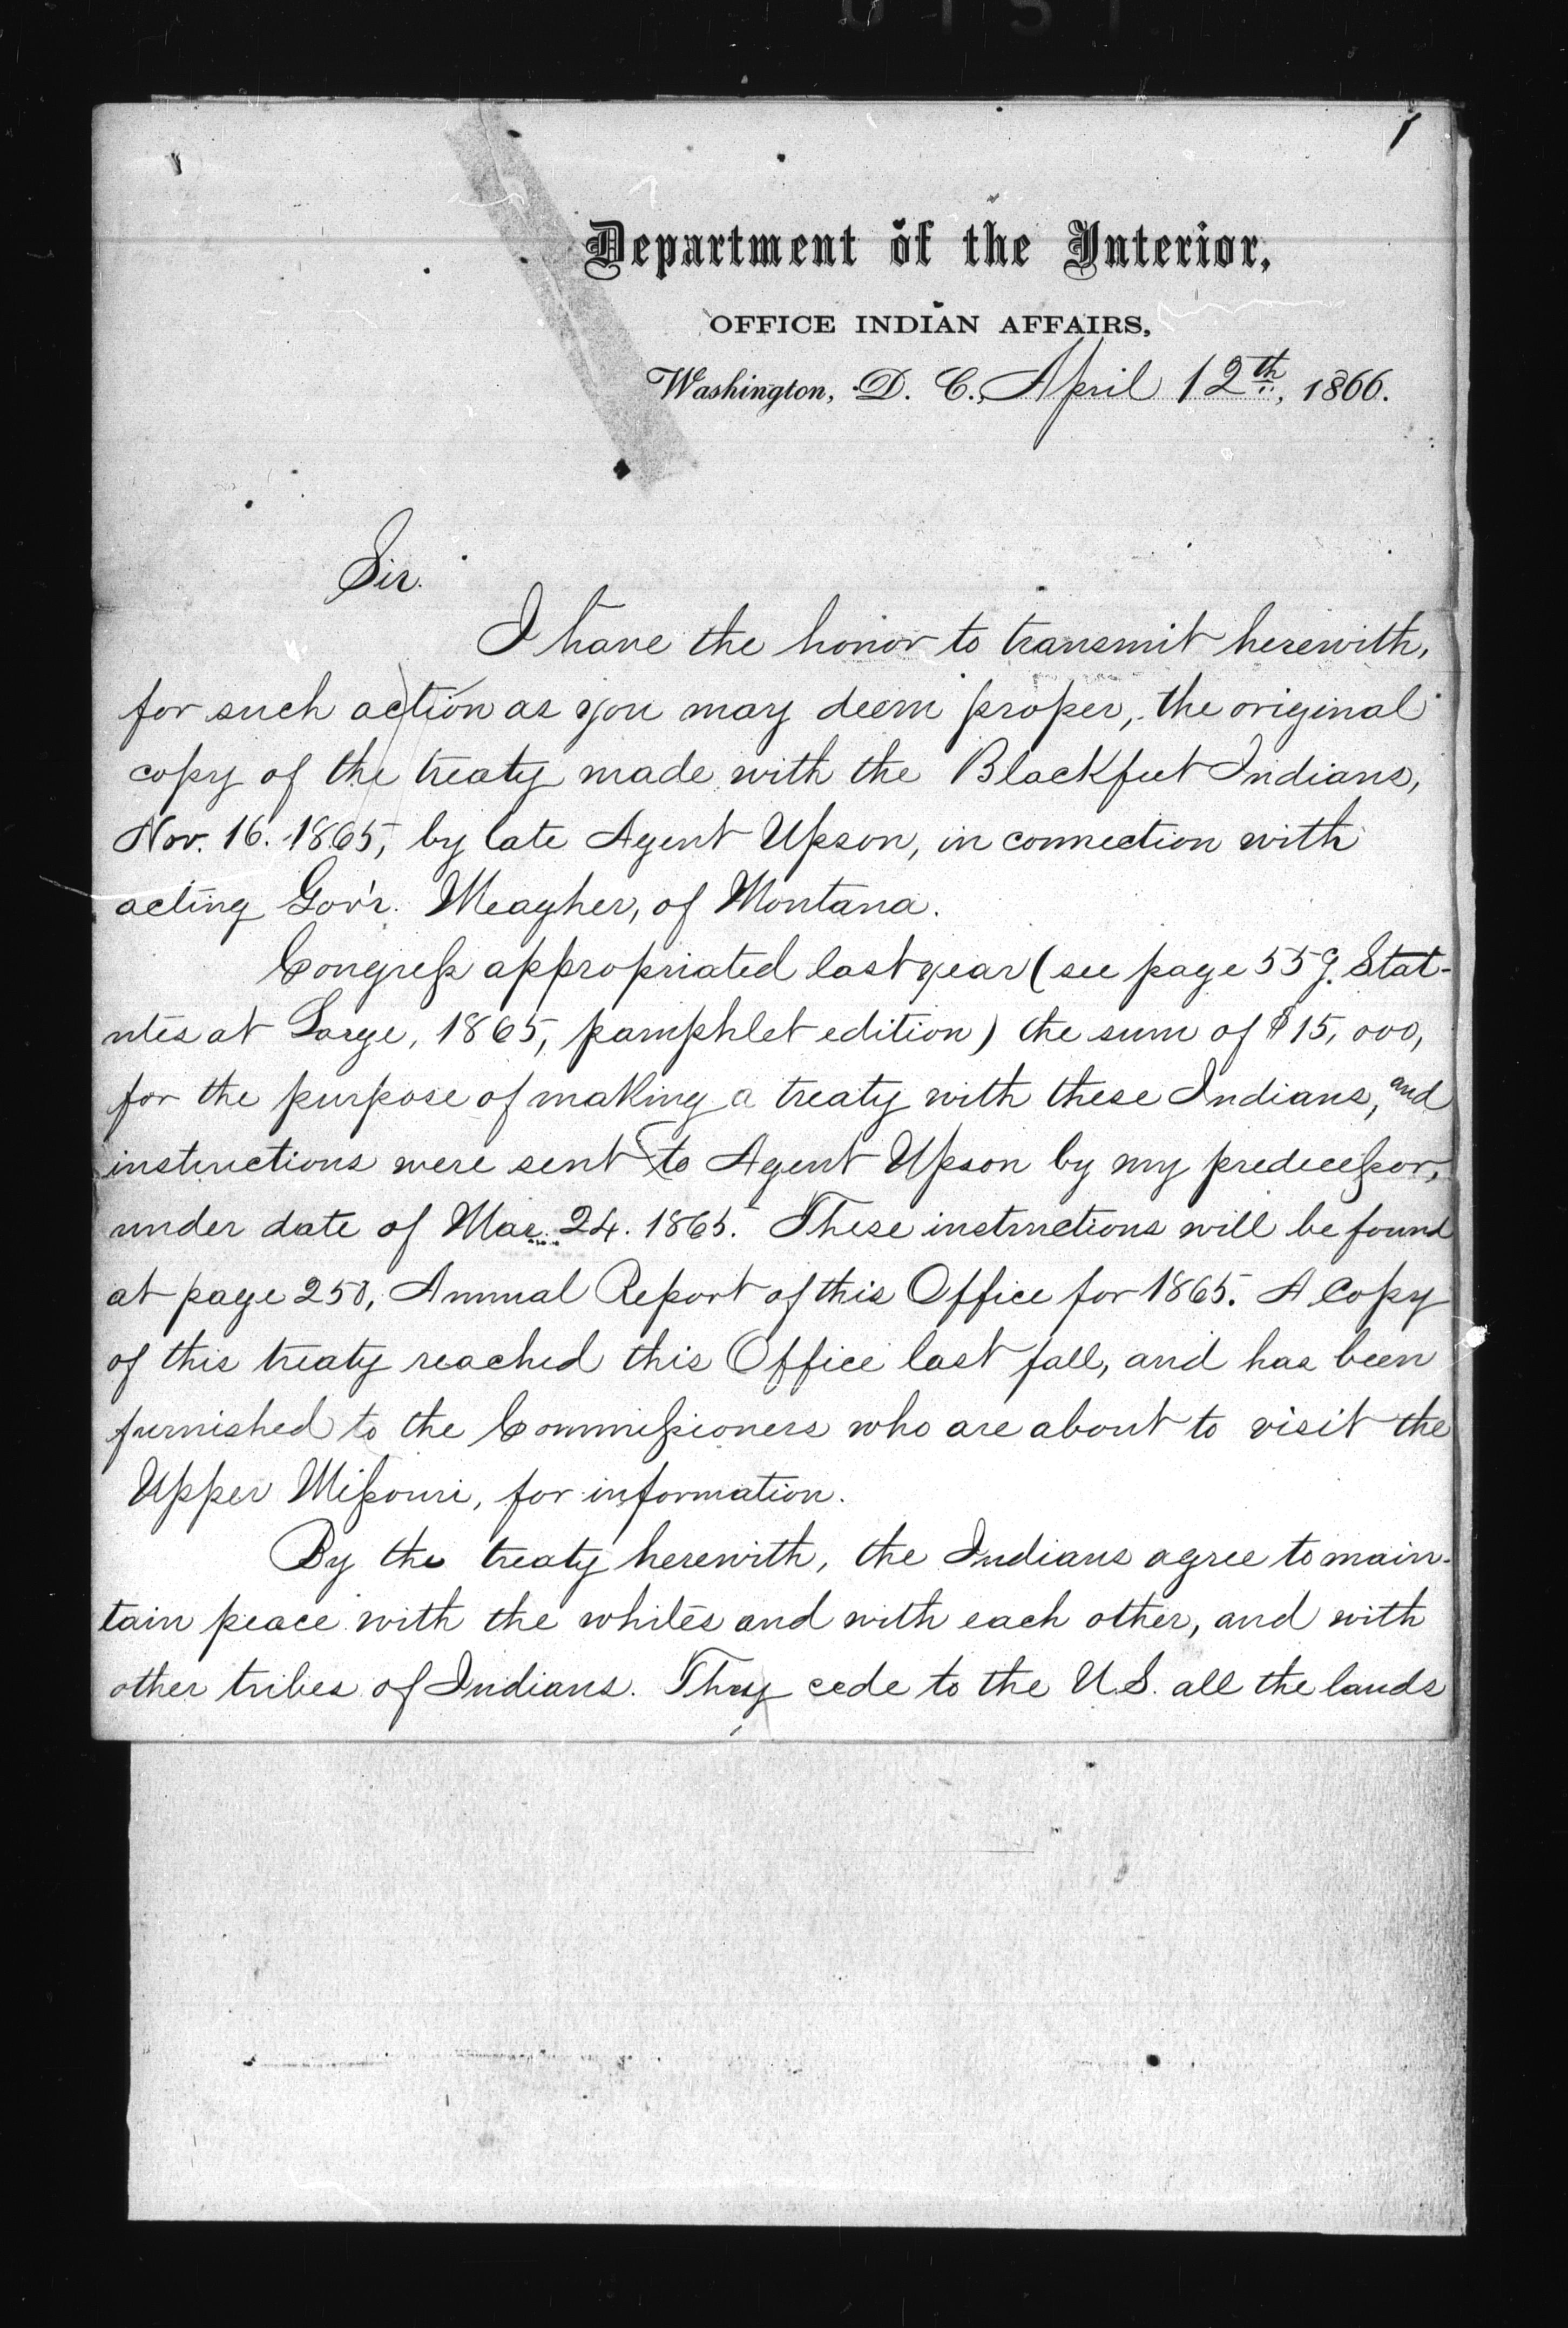 Department of the Interior,
OFFICE INDIAN AFFAIRS,
Washington, D. C., April 12th, 1866.
Sir.
I have the honor to transmit herewith,
for such action as you may deem proper, the original
copy of the treaty made with the Blackfeet Indians,
Nov. 16. 1865, by late Agent Upson, in connection with
acting Gov'r. Meagher, of Montana.
Congress appropriated last year (see page 559. Stat-
utes at Large, 1865, pamphlet edition) the sum of $15,000,
for the purpose of making a treaty with these Indians, and
instructions were sent to Agent Upson by my predecessor,
under date of Mar. 24. 1865. These instructions will be found
at page 250, Annual Report of this Office for 1865. A copy
of this treaty reached this Office last fall, and has been
furnished to the Commissioners who are about to visit the
Upper Missouri, for information.
By the treaty herewith, the Indians agree to main-
tain peace with the whites and with each other, and with
other tribes of Indians. They cede to the U.S. all the lands